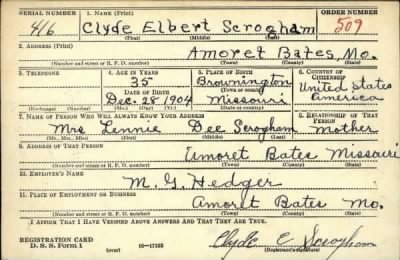 SERIAL NUMBER 1. NAME (Print) ORDER NUMBER
416 Clyde Elbert Scrogham 509
(First) (Middle) (Last)
2. ADDRESS (Print)
Amoret Bates, Mo.
(Number and street or R. F. D. number) (Town) (County) (State)
3. TELEPHONE 4. AGE IN YEARS 5. PLACE OF BIRTH 6. COUNTRY OF CITIZENSHIP
35 Brownington United states
DATE OF BIRTH (Town or county)
Dec. 28 1904 Missouri America
(Exchange) (No.) (Mo.) (Day) (Yr.) (State or country)
7. NAME OF PERSON WHO WILL ALWAYS KNOW YOUR ADDRESS 8. RELATIONSHIP OF THAT PERSON
Mrs Lennie Dee Scrogham mother
(Mr., Mrs., Miss) (First) (Middle) (Last)
9. ADDRESS OF THAT PERSON
Amoret Bates Missouri
(Number and street or R. F. D. number) (Town) (County) (State)
10. EMPLOYER'S NAME
M. G. Hedger
11. PLACE OF EMPLOYMENT OR BUSINESS
Amoret Bates Mo.
(Number and street or R. F. D. number) (Town) (County) (State)
I AFFIRM THAT I HAVE VERIFIED ABOVE ANSWERS AND THAT THEY ARE TRUE.
REGISTRATION CARD Clyde E Scrogham
D. S. S. Form 1 (over) 16—17105 (Registrant's signature)